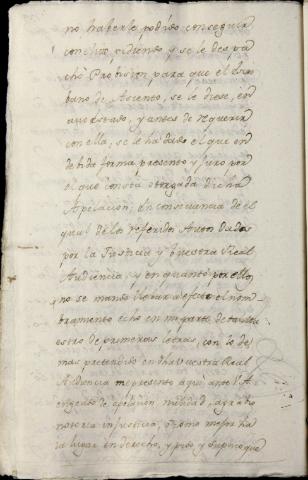 no haberle podido conseguir
concluio pidiendo y se le despa
chò Probision para que el Escri
bano de Asiento, se le diese, con
auto estado, y antes de requerir
con ella, se le ha dado el que en
debida forma presento y Juro por
el que consta otorgada dicha
Apelacion, en consequencia de el
qual de los referidos Autos dados
por la Justicia y Vuestra Real
Audiencia, y en quanto por ellos
no se mandò llevar a efecto el nom-
bramento echo en mi parte de Ma
estro de primeras letras, con lo de
mas pretendido en dha Vuestra Real
Audiencia me presento aqui ante V.A
en grado de apelacion nulidad, agrabio
notoria injusticia, o como mejor ha
ia lugar en derecho, y pido y suplico que